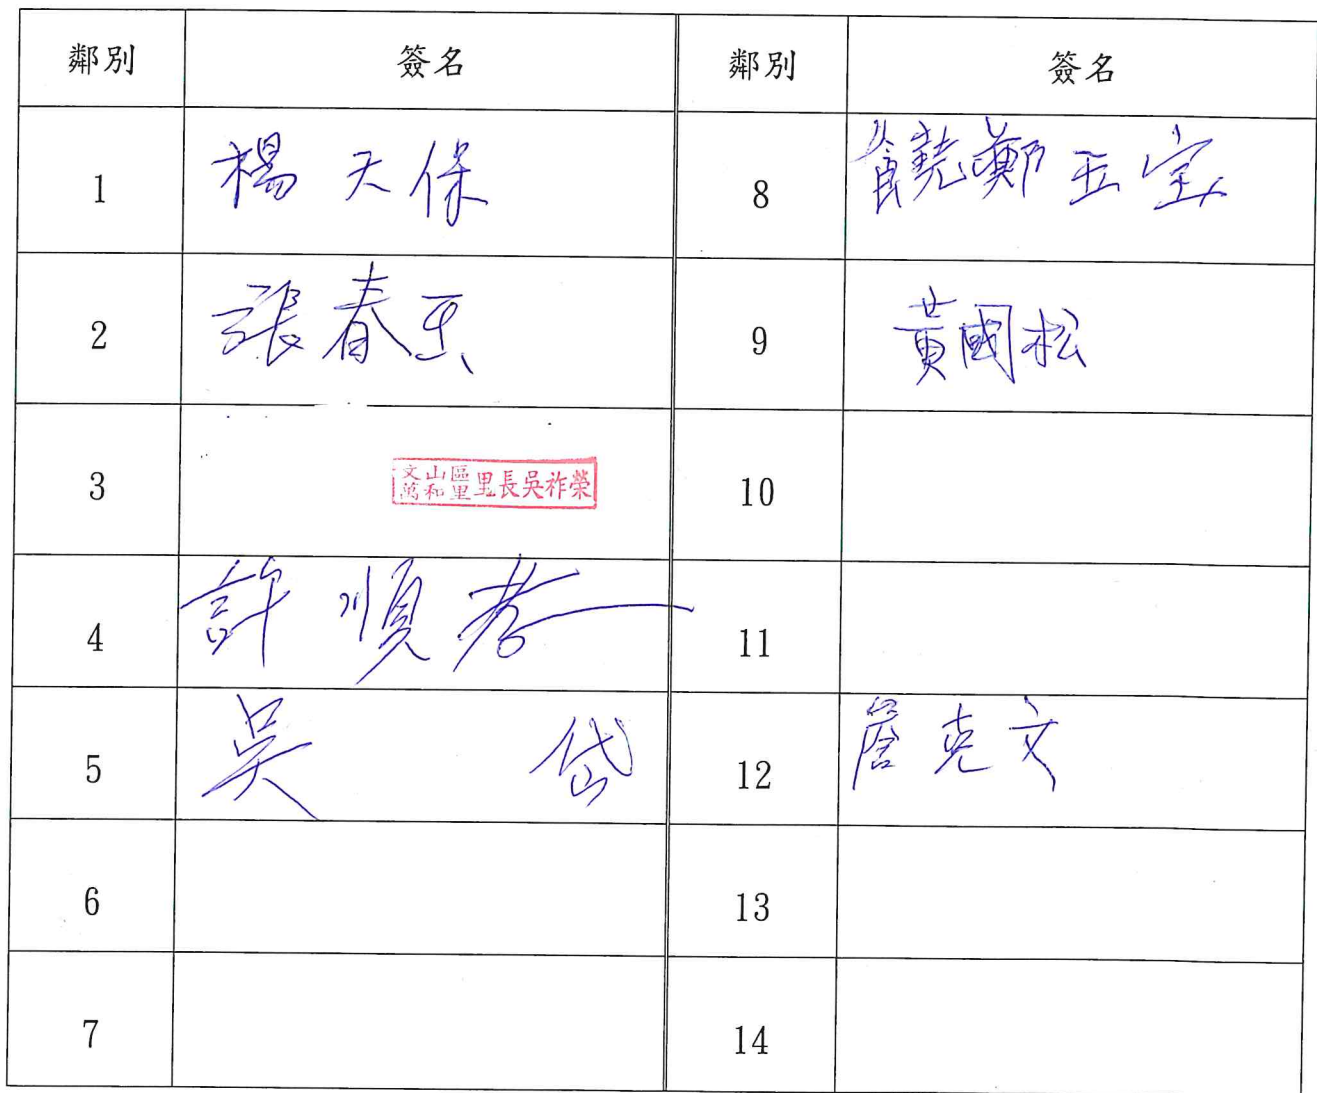 鄰別 簽名 鄰別 簽名
1 楊天保 8 饒鄭玉宝
2 張春玉 9 黃國松
3 文山區萬和里里長吳祚榮 10
4 許順孝 11
5 吳岱 12 詹克文
6 13
7 14